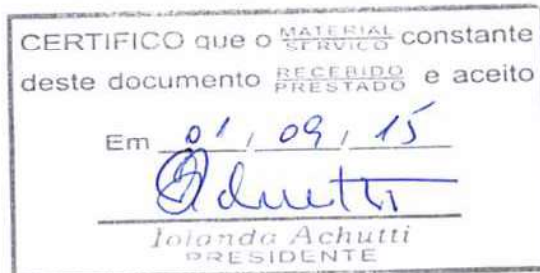 CERTIFICO que o MATERIAL SERVIÇO constante
deste documento RECEBIDO PRESTADO e aceito
Em 01, 09, 15
Achutti
Iolanda Achutti
PRESIDENTE